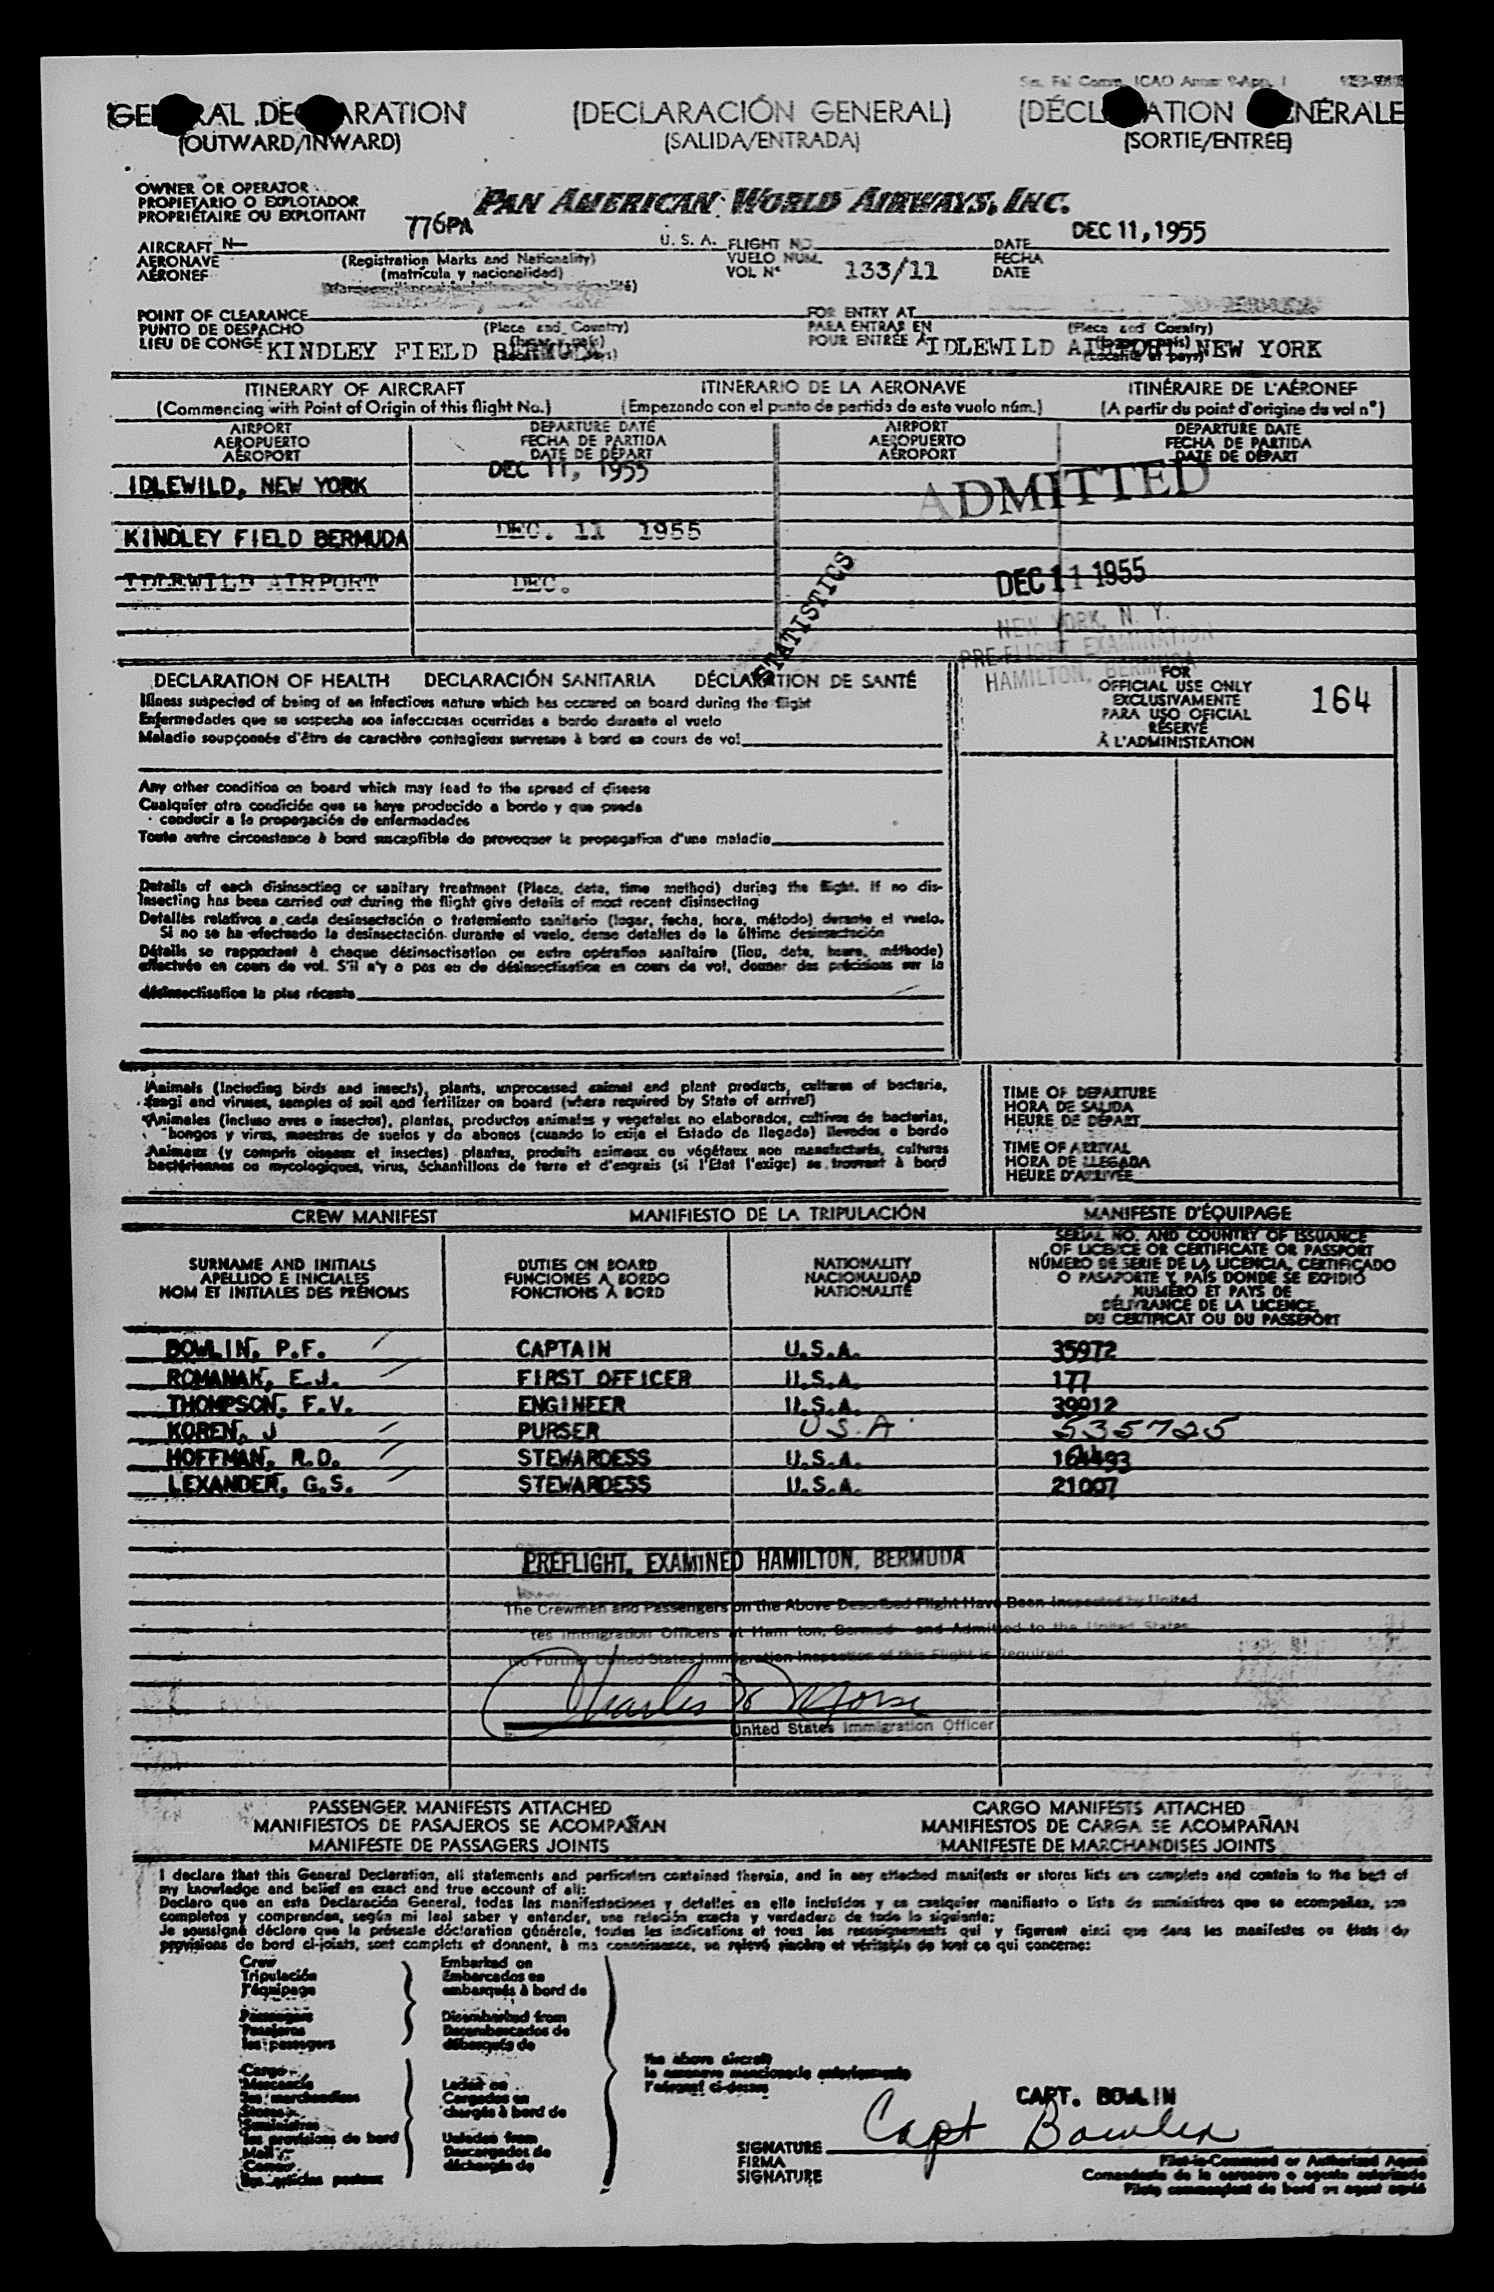 GENERAL DECLARATION (DECLARACIÓN GENERAL) (DÉCLARATION GÉNÉRALE
(OUTWARD/INWARD) (SALIDA/ENTRADA) (SORTIE/ENTRÉE)
OWNER OR OPERATOR
PROPIETARIO O EXPLOTADOR
PROPRIÉTAIRE OU EXPLOITANT
PAN AMERICAN WORLD AIRWAYS, INC.
AIRCRAFT N- 776PA U. S. A. FLIGHT NO. DATE DEC 11, 1955
AERONAVE (Registration Marks and Nationality) VUELO NUM. 133/11 FECHA
AÉRONEF (matrícula y nacionalidad) VOL N° DATE
POINT OF CLEARANCE FOR ENTRY AT
PUNTO DE DESPACHO (Place and Country) PARA ENTRAR EN (Place and Country)
LIEU DE CONGÉ KINDLEY FIELD BERMUDA POUR ENTRÉE À IDLEWILD AIRPORT NEW YORK
ITINERARY OF AIRCRAFT ITINERARIO DE LA AERONAVE ITINÉRAIRE DE L'AÉRONEF
(Commencing with Point of Origin of this flight No.) (Empezando con el punto de partida de este vuelo núm.) (A partir du point d'origine du vol n°)
AIRPORT DEPARTURE DATE AIRPORT DEPARTURE DATE
AEROPUERTO FECHA DE PARTIDA AEROPUERTO FECHA DE PARTIDA
AÉROPORT DATE DE DÉPART AÉROPORT DATE DE DÉPART
IDLEWILD, NEW YORK DEC 11, 1955
ADMITTED
KINDLEY FIELD BERMUDA DEC. 11 1955
IDLEWILD AIRPORT DEC.
STATISTICS
DEC 11 1955
NEW YORK, N. Y.
PRE-FLIGHT EXAMINATION
HAMILTON, BERMUDA
DECLARATION OF HEALTH DECLARACIÓN SANITARIA DÉCLARATION DE SANTÉ
Illness suspected of being of an infectious nature which has occured on board during the flight
Enfermedades que se sospecha son infecciosas ocurridas a bordo durante el vuelo
Maladie soupçonnée d'être de caractère contagieux survenue à bord en cours de vol
FOR
OFFICIAL USE ONLY
EXCLUSIVAMENTE
PARA USO OFICIAL
RÉSERVÉ
À L'ADMINISTRATION
164
Any other condition on board which may lead to the spread of disease
Cualquier otra condición que se haya producido a bordo y que pueda
conducir a la propagación de enfermedades
Toute autre circonstance à bord susceptible de provoquer la propagation d'une maladie
Details of each disinsecting or sanitary treatment (Place, date, time method) during the flight. If no dis-
insecting has been carried out during the flight give details of most recent disinsecting
Detalles relativos a cada desinsectación o tratamiento sanitario (lugar, fecha, hora, método) durante el vuelo.
Si no se ha efectuado la desinsectación durante el vuelo, dense detalles de la última desinsectación
Détails se rapportant à chaque désinsectisation ou autre opération sanitaire (lieu, date, heure, méthode)
effectuée en cours de vol. S'il n'y a pas eu de désinsectisation en cours de vol, donner des précisions sur la
désinsectisation la plus récente
Animals (including birds and insects), plants, unprocessed animal and plant products, cultures of bacteria,
fungi and viruses, samples of soil and fertilizer on board (where required by State of arrival)
Animales (incluso aves e insectos), plantas, productos animales y vegetales no elaborados, cultivos de bacterias,
hongos y virus, muestras de suelos y de abonos (cuando lo exija el Estado de llegada) llevados a bordo
Animaux (y compris oiseaux et insectes) plantes, produits animaux ou végétaux non manufacturés, cultures
bactériennes ou mycologiques, virus, échantillons de terre et d'engrais (si l'État l'exige) se trouvant à bord
TIME OF DEPARTURE
HORA DE SALIDA
HEURE DE DÉPART
TIME OF ARRIVAL
HORA DE LLEGADA
HEURE D'ARRIVÉE
CREW MANIFEST MANIFIESTO DE LA TRIPULACIÓN MANIFESTE D'ÉQUIPAGE
SURNAME AND INITIALS
APELLIDO E INICIALES
NOM ET INITIALES DES PRÉNOMS
DUTIES ON BOARD
FUNCIONES A BORDO
FONCTIONS À BORD
NATIONALITY
NACIONALIDAD
NATIONALITÉ
SERIAL NO. AND COUNTRY OF ISSUANCE
OF LICENCE OR CERTIFICATE OR PASSPORT
NÚMERO DE SERIE DE LA LICENCIA, CERTIFICADO
O PASAPORTE Y PAÍS DONDE SE EXPIDIÓ
NUMÉRO ET PAYS DE
DÉLIVRANCE DE LA LICENCE
DU CERTIFICAT OU DU PASSEPORT
BOWLIN, P.F. CAPTAIN U.S.A. 35972
ROMANAK, E.J. FIRST OFFICER U.S.A. 177
THOMPSON, F.V. ENGINEER U.S.A. 39912
KOREN, J PURSER U.S.A. 535725
HOFFMAN, R.D. STEWARDESS U.S.A. 164493
LEXANDER, G.S. STEWARDESS U.S.A. 21007
PREFLIGHT, EXAMINED HAMILTON, BERMUDA
The Crewmen and Passengers on the Above Described Flight Have Been Inspected by United
tes Immigration Officers at Ham ton, Bermud and Admitted to the United States
No Further United States Immigration Inspection of this Flight is Required.
Charles Morse
United States Immigration Officer
PASSENGER MANIFESTS ATTACHED CARGO MANIFESTS ATTACHED
MANIFIESTOS DE PASAJEROS SE ACOMPAÑAN MANIFIESTOS DE CARGA SE ACOMPAÑAN
MANIFESTE DE PASSAGERS JOINTS MANIFESTE DE MARCHANDISES JOINTS
I declare that this General Declaration, all statements and particulars contained therein, and in any attached manifests or stores lists are complete and contain to the best of
my knowledge and belief an exact and true account of all:
Declaro que en esta Declaración General, todas las manifestaciones y detalles en ella incluídos y en cualquier manifiesto o lista de suministros que se acompañan, son
completos y comprenden, según mi leal saber y entender, una relación exacta y verdadera de todo lo siguiente:
Je soussigné déclare que la présente déclaration générale, toutes les indications et tous les renseignements qui y figurent ainsi que dans les manifestes ou états de
provisions de bord ci-joints, sont complets et donnent, à ma connaissance, un relevé sincère et véritable de tout ce qui concerne:
Crew Embarked on
Tripulación Embarcados en
l'équipage embarqués à bord de
Passengers Disembarked from
Pasajeros Desembarcados de
les passagers débarqués de
Cargo
Mercancía Laden on
les marchandises Cargados en
Stores chargés à bord de
Suministros
les provisions de bord Unladen from
Mail Descargados de
Correo déchargés de
les articles postaux
the above aircraft
la aeronave mencionada anteriormente
l'aéronef ci-dessus
CAPT. BOWLIN
SIGNATURE Capt Bowlin
FIRMA
SIGNATURE
Pilot-in-Command or Authorized Agent
Comandante de la aeronave o agente autorizado
Pilote commandant de bord ou agent agréé